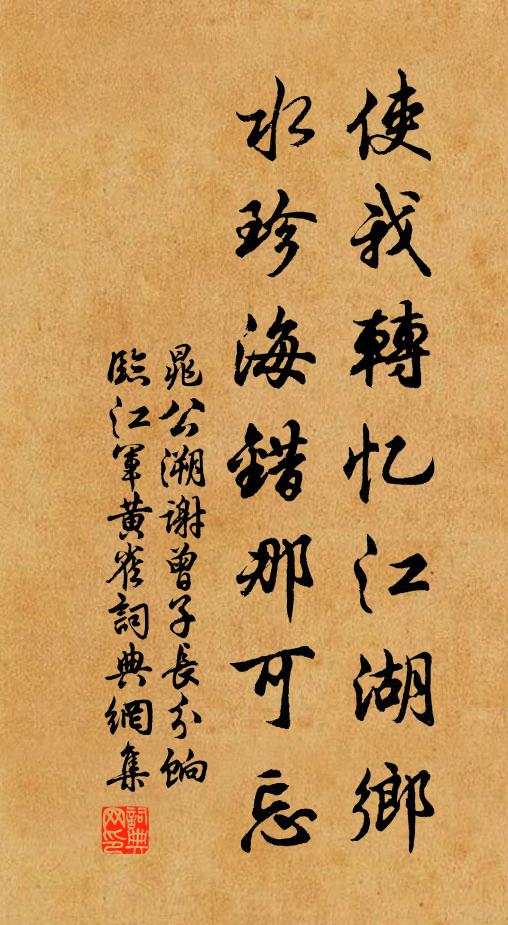 使我轉忆江湖鄉
水珍海錯那可忘
晁公溯謝曾子長分餉
臨江軍黄雀詞典網集
詞典
网印